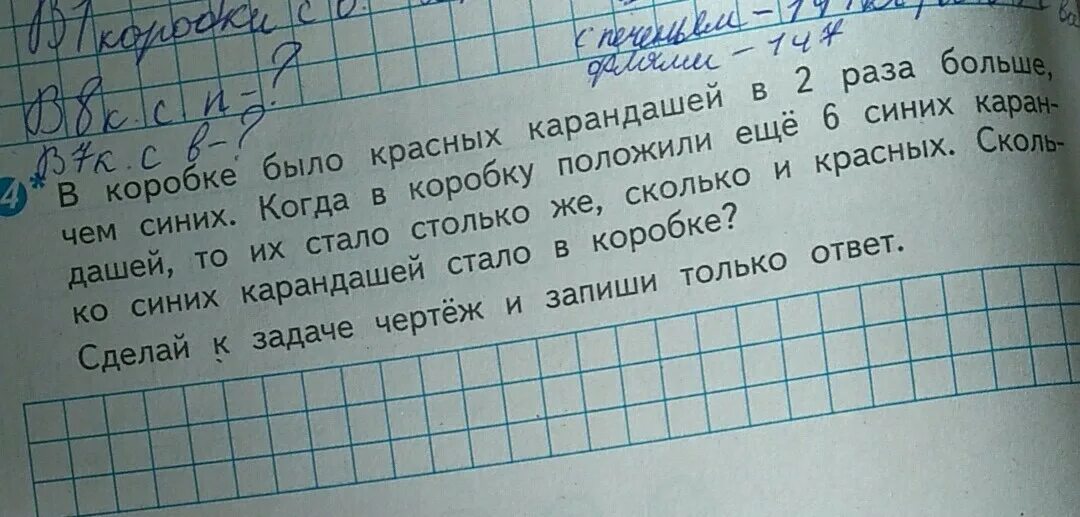 В 1 коробки с
с печеньем – 147
В 8 к. с п – ?
– 147
В 7 к. с в – ?
4* В коробке было красных карандашей в 2 раза больше,
чем синих. Когда в коробку положили ещё 6 синих каран-
дашей, то их стало столько же, сколько и красных. Сколь-
ко синих карандашей стало в коробке?
Сделай к задаче чертёж и запиши только ответ.